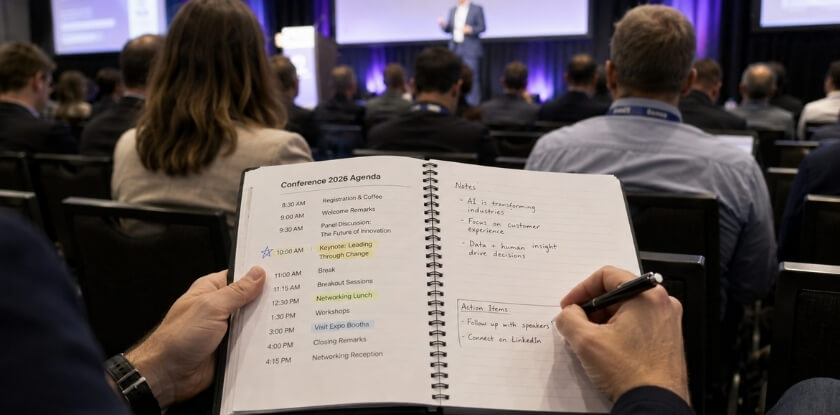 Conference 2026 Agenda
8:30 AM Registration & Coffee
9:00 AM Welcome Remarks
9:30 AM Panel Discussion:
The Future of Innovation
10:00 AM Keynote: Leading
Through Change
11:00 AM Break
11:15 AM Breakout Sessions
12:30 PM Networking Lunch
1:30 PM Workshops
3:00 PM Visit Expo Booths
4:00 PM Closing Remarks
4:15 PM Networking Reception
Notes
- AI is transforming
industries
- Focus on customer
experience
- Data + human insight
drive decisions
Action Items:
- Follow up with speakers
- Connect on LinkedIn